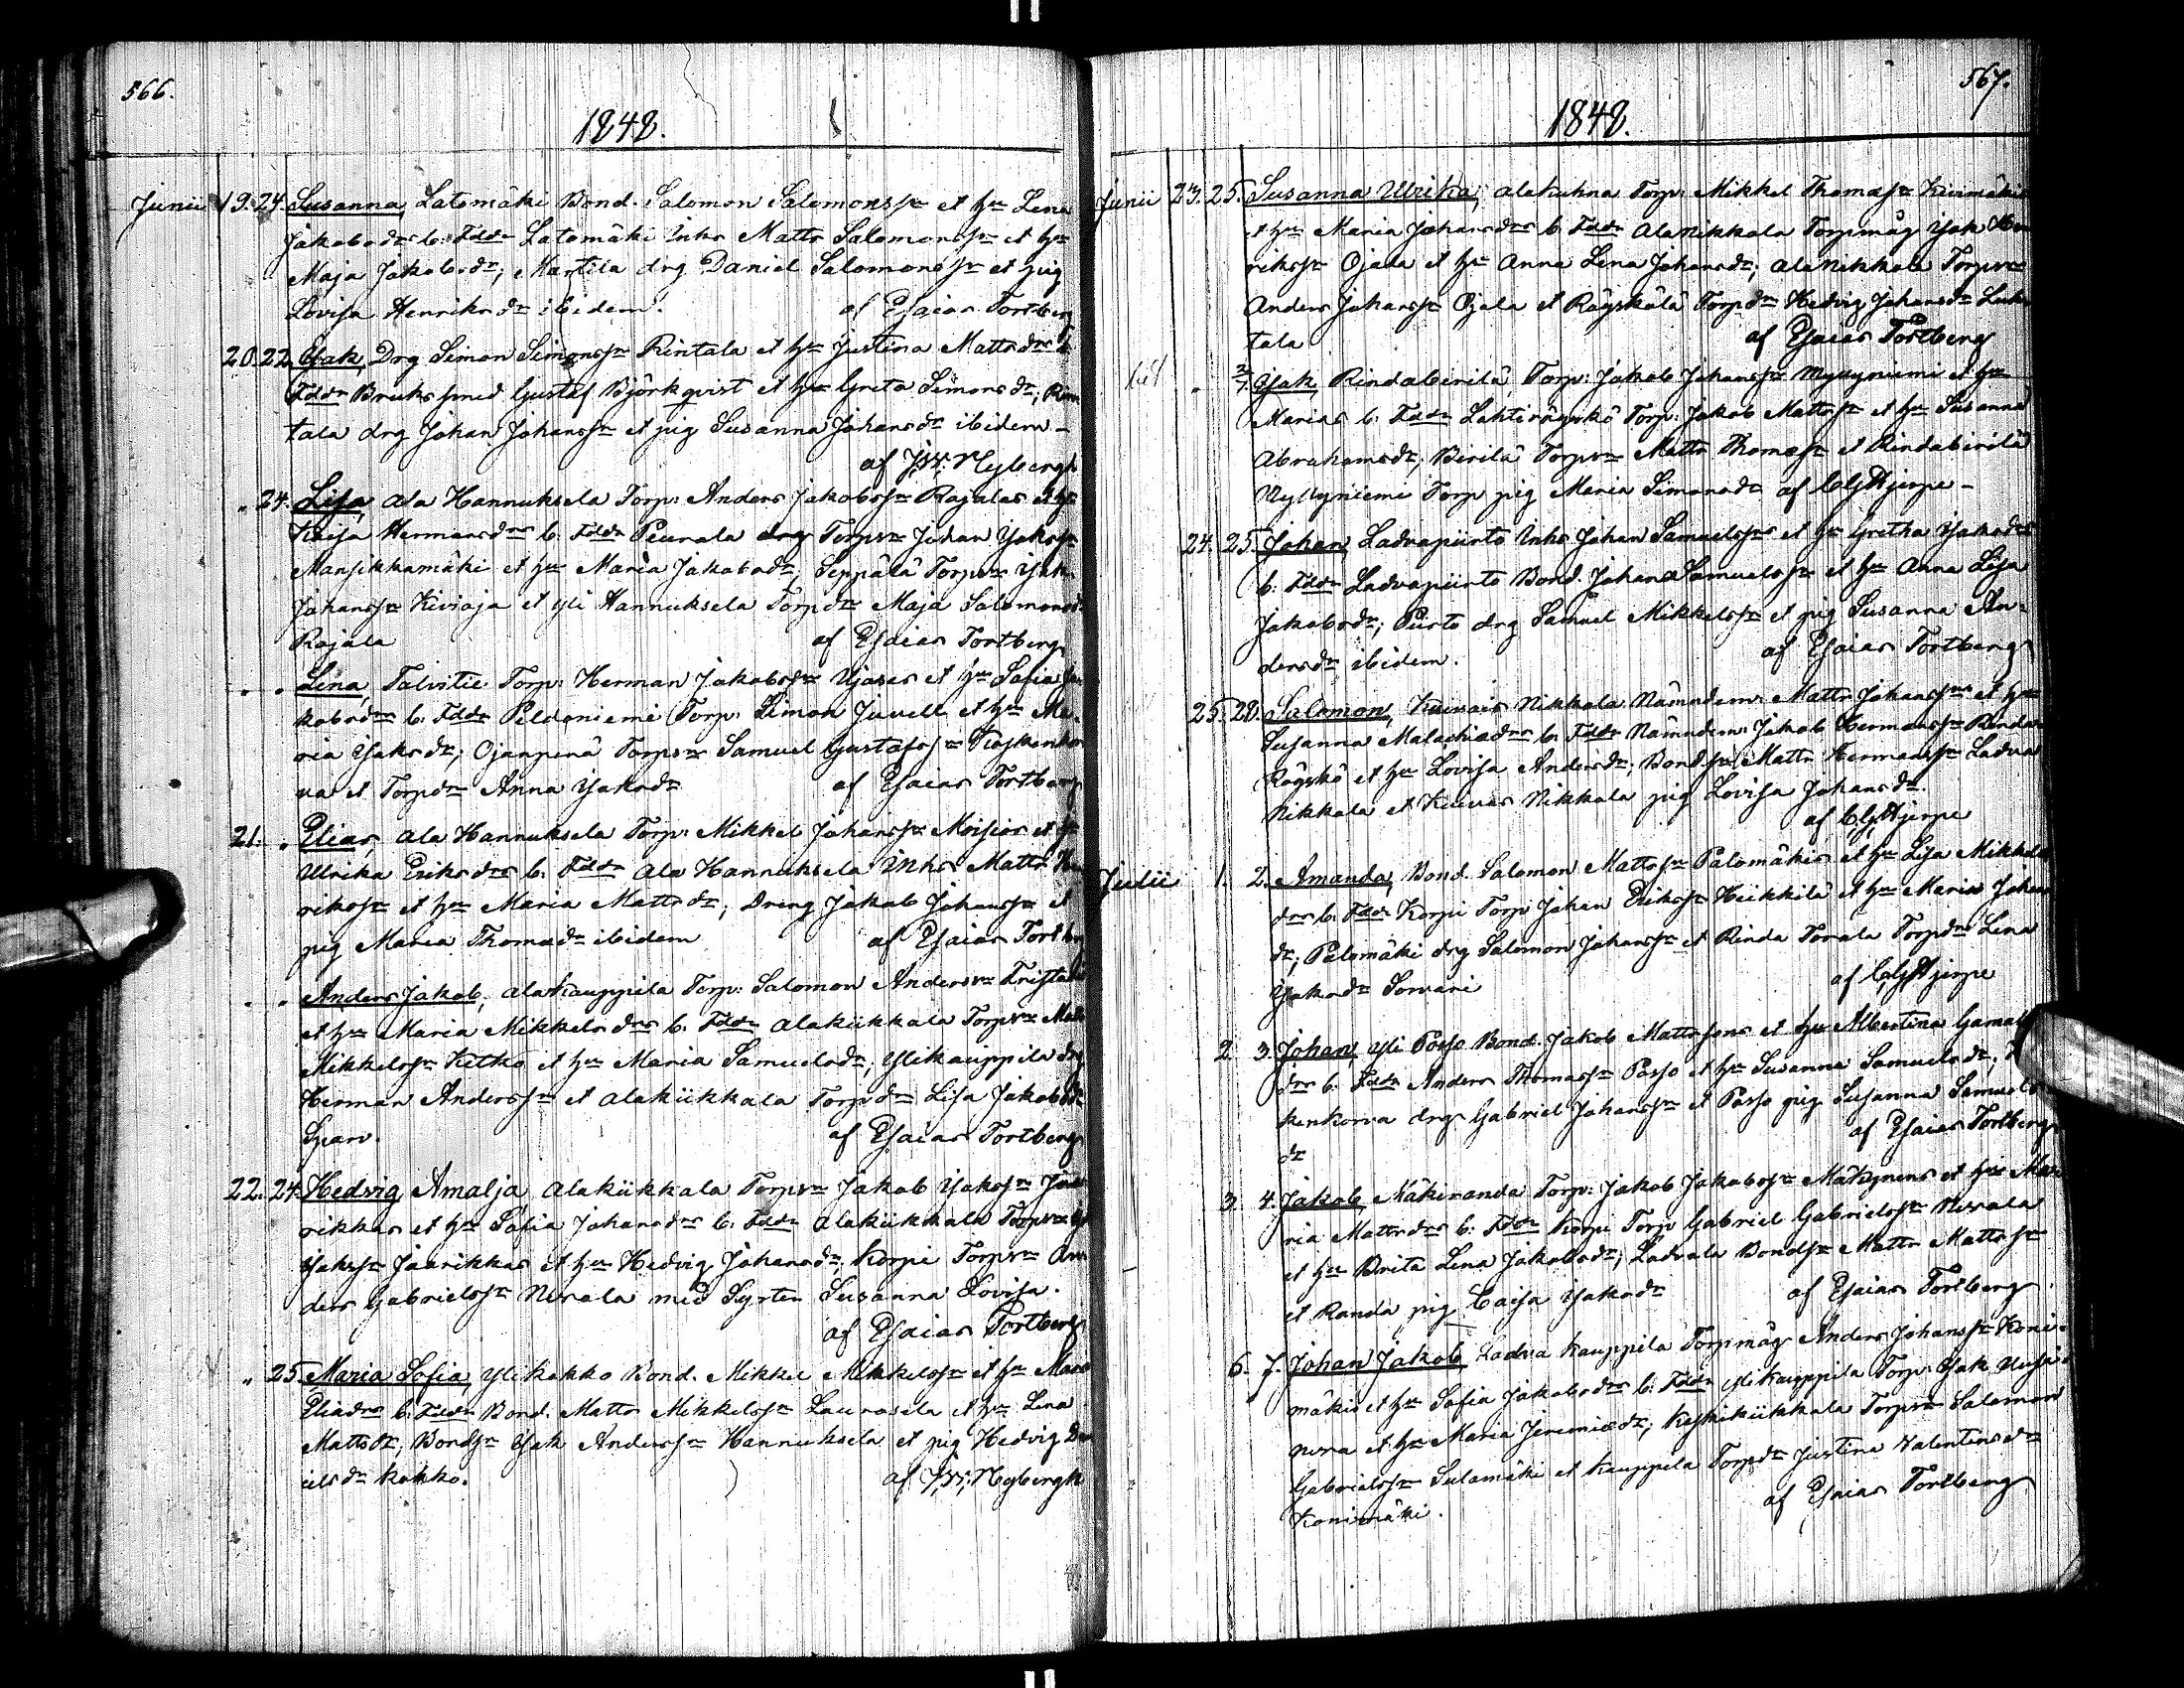 566.
1848.
Junii 19. 24. Susanna, Latomäki Bond. Salomon Salomonssn et hu Lena
Jakobsdrs b: Fddr Latomäki Inhs Matts Salomonssn et hu
Maja Jakobsdr; Martila drg Daniel Salomonssn et pig
Lovisa Henriksdr ibidem. af Esaias Tortberg
20. 22. Isak, Drg Simon Simonssn Rintala et hu Justina Mattsdrs b.
Fddr Bruks smed Gustaf Björkqvist et hu Greta Simonsdr; Rin
tala drg Johan Johanssn et pig Susanna Johansdr ibidem –
af Nybergh
„ 24. Lisa, Ala Hannuksela Torp: Anders Jakobssn Rajalas et hu
Kaisa Hermansdrs b. Fddr Peurala drg Torpsn Johan Isakssn
Mansikkamäki et hu Maria Jakobsdr; Seppälä Torpsn Isak
Johanssn Kivioja et Yli Hannuksela Torpdr Maja Salomonsdr
Rajala af Esaias Tortberg
„ „ Lena, Talvitie Torp: Herman Jakobssn Ujases et hu Sofia Ja
kobsdrs b. Fddr Peldoniemi Torp: Simon Juvell et hu Ma
ria Isaksdr; Ojanperä Torpsn Samuel Gustafssn Koskenkor
va et Torpdr Anna Isaksdr af Esaias Tortberg
21. „ Elias, Ala Hannuksela Torp: Mikkel Johanssn Moisios et hu
Ulrika Eriksdrs b. Fddr Ala Hannuksela Inhs Matts Hen
rikssn et hu Maria Mattsdr; Dreng Jakob Johanssn et
pig Maria Thomasdr ibidem af Esaias Tortberg
„ „ Anders Jakob, Alakauppila Torp: Salomon Anderssn
et hu Maria Mikkelsdrs b. Fddr Alakiikkala Torpsn Matts
Mikkelssn Ketko et hu Maria Samuelsdr; Ylikauppila drg
Herman Anderssn et Alakiikkala Torpdr Lisa Jakobsdr
Span. af Esaias Tortberg
22. 24. Hedvig Amalja, Alakiikkala Torpsn Jakob Isakssn Jaa
rikkas et hu Sofia Johansdrs b. Fddr Alakiikkala Torpsn
Isakssn Jaarikkas et hu Hedvig Johansdr; Korpi Torpsn An
ders Gabrielssn Nerala med Syster Susanna Lovisa.
af Esaias Tortberg
„ 25. Maria Sofia, Ylikokko Bond. Mikkel Mikkelssn et hu Maria
Eliadrs b. Fddr Bond. Matts Mikkelssn Laurosela et hu Lena
Mattsdr, Bondsn Isak Anderssn Hannuksela et pig Hedvig Dan
ielsdr Kokko. af Nybergh
567.
1848.
Junii 23. 25. Susanna Ulrika, Alakuhna Torp: Mikkel Thomassn Kivimäkis
et hu Maria Johansdrs b. Fddr Alanikkola Torpmåg Isak Hen
rikssn Ojala et hu Anna Lena Johansdr; Alanikkola Torpsn
Anders Johanssn Ojala et Röyskölä Torpdr Hedvig Johansdr Luh
tala af Esaias Tortberg
„ 2/7. Isak, Rindabirilä Torp: Jakob Johanssn Myllyniemi et hu
Marias b. Fddr Lahtiröyskö Torp: Jakob Mattssn et hu Susanna
Abrahamsdr; Birilä Torpsn Matts Thomassn et Rindabirilä
Myllyniemi Torp pig Maria Simonsdr af CG Hjerpe –
24. 25. Johan, Ladvapiirto Inhs Johan Samuelssn et hu Gretha Isaksdrs
b. Fddr Ladvapiirto Bond. Johan Samuelssn et hu Anna Lisa
Jakobsdr; Piirto drg Samuel Mikkelssn et pig Susanna An-
dersdr ibidem. af Esaias Tortberg
25. 28. Salomon, Kuivais Nikkola Nämndem: Matts Johanssns et hu
Susanna Malachiadrs b. Fddr Nämndem: Jakob Hermanssn Rinda
Röyskö et hu Lovisa Andersdr; Bondsn Matts Hermanssn Ladva
Nikkola et Kuivas Nikkola pig Lovisa Johansdr.
af CG Hjerpe
Julii 1. 2. Amanda, Bond. Salomon Mattssn Palomäkis et hu Lisa Mikkels
drs b. Fddr Korpi Torp Johan Erikssn Heikkilä et hu Maria Johans
dr; Palomäki drg Salomon Johanssn et Rinda Torala Torpdr Lena
Isaksdr Sorvari af CG Hjerpe
2. 3. Johan, Yli Passo Bond. Jakob Mattssons et hu Albertina Gamal
drs b. Fddr Anders Thomassn Passo et hu Susanna Samuelsdr;
kenkorva drg Gabriel Johanssn et Passo pig Susanna Samuels
dr af Esaias Tortberg
3. 4. Jakob, Mäkiranda Torp: Jakob Jakobssn Mäkynens et hu Ma
ria Mattsdrs b: Fddr Korpi Torp Gabriel Gabrielssn Nerala
et hu Brita Lena Jakobsdr; Ladvala Bondsn Matts Mattssn
et Randa pig Caisa Isaksdr af Esaias Tortberg
6. 7. Johan Jakob, Ladva Kauppila Torpmåg Anders Johanssn Koni-
mäkis et hu Sofia Jakobsdrs b. Fddr Ylikauppila Torp: Isak
et hu Maria Jeremiædr; Keskikiikkala Torpsn Salomon
Gabrielssn Sulamäki et Kauppila Torpdr Justina Valentinsdr
Konimäki. af Esaias Tortberg